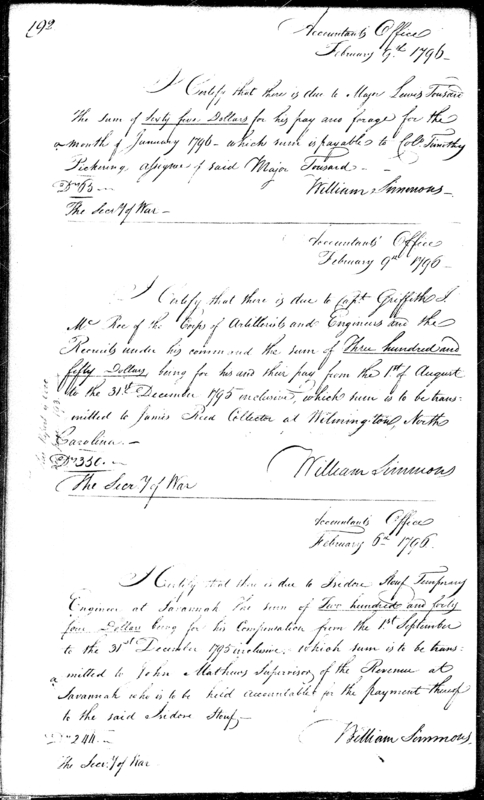 192
Accountants Office
February 9th 1796
I Certify that there is due to Major Lewis Tousard
The sum of Sixty five Dollars for his pay and forage for the
month of January 1796 - which sum is payable to Colo. Timothy
Pickering assignee of said Major Tousard -
Drs 65
William Simmons
The Secry of War
Accountants Office
February 9th 1796
I Certify that there is due to Capt Griffith J.
Mc Ree of the Corps of Artillerists and Engineers and the
Recruits under his command the sum of Three hundred and
fifty Dollars being for his and their pay from the 1st of August
to the 31st December 1795 inclusive, which sum is to be trans=
mitted to James Reed Collector at Wilmington, North
Carolina
Drs 350
William Simmons
The Secry of War
Accountants Office
February 6th 1796
I Certify that there is due to Isidore Temporary
Engineer at Savannah the sum of Two hundred and forty
four Dollars being for his Compensation from the 1st September
to the 31st December 1795 inclusive, which sum is to be trans=
mitted to John Mathews Supervisor of the Revenue at
Savannah who is to be held accountable for the payment thereof
to the said Isidore
Drs 244
William Simmons
The Secry of War